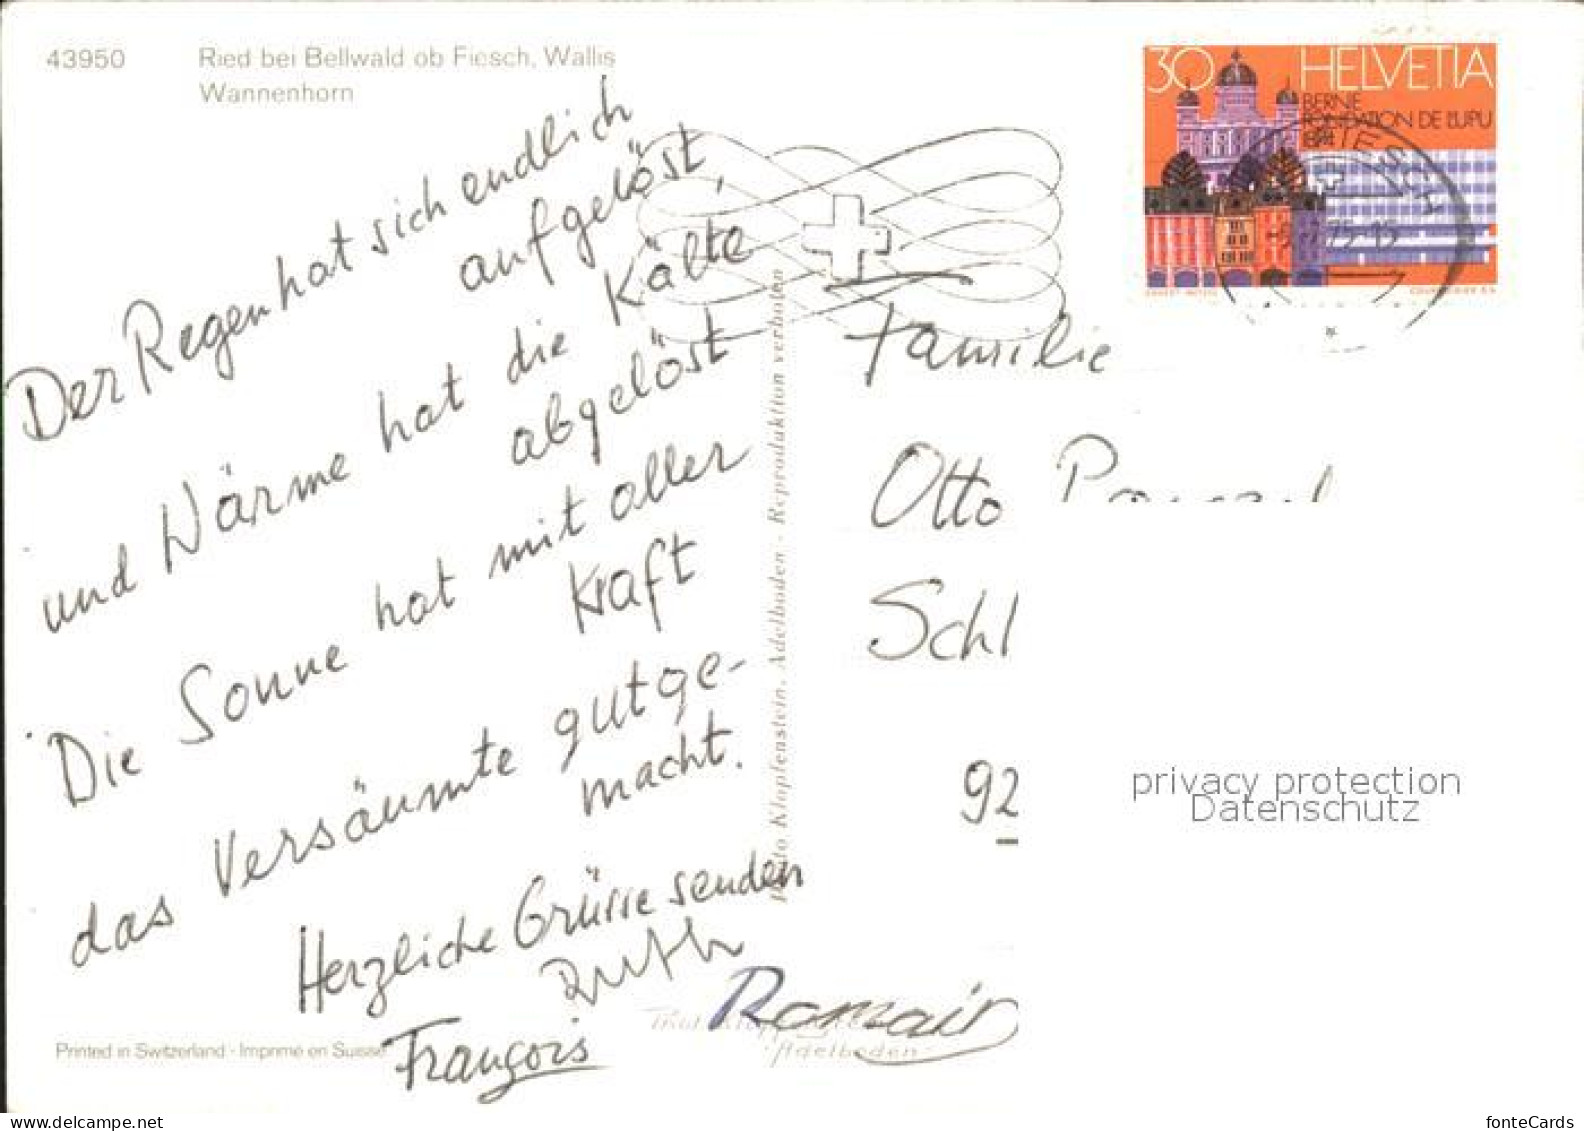 43950 Ried bei Bellwald ob Fiesch, Wallis
Wannenhorn
Der Regen hat sich endlich
aufgelöst,
und Wärme hat die Kälte
abgelöst
Die Sonne hat mit aller
Kraft
das Versäumte gutge-
macht.
Herzliche Grüsse senden
Ruth
François
Romair
Printed in Switzerland - Imprimé en Suisse
Adelboden
Photo Klopfenstein, Adelboden - Reproduktion verboten
30 HELVETIA
BERNE
FONDATION DE L'UPU
1874
FIESCH
Familie
Otto
Schl
92
privacy protection
Datenschutz
fonteCards